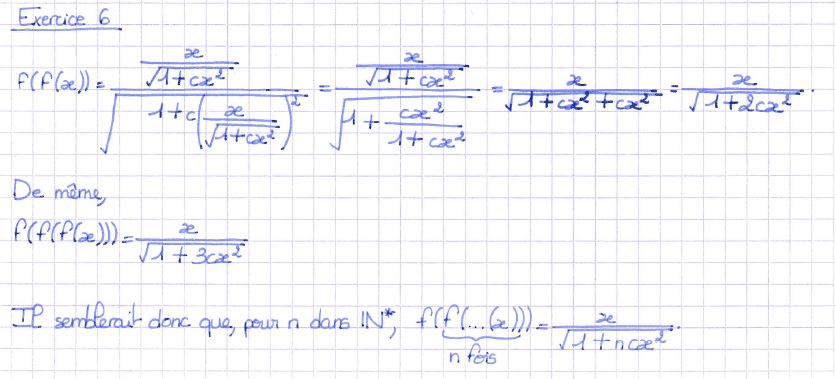 Exercice 6
f(f(x)) = \frac{\frac{x}{\sqrt{1+cx^2}}}{\sqrt{1+c\left(\frac{x}{\sqrt{1+cx^2}}\right)^2}} = \frac{\frac{x}{\sqrt{1+cx^2}}}{\sqrt{1+\frac{cx^2}{1+cx^2}}} = \frac{x}{\sqrt{1+cx^2+cx^2}} = \frac{x}{\sqrt{1+2cx^2}}.
De même,
f(f(f(x))) = \frac{x}{\sqrt{1+3cx^2}}
Il semblerait donc que, pour n dans IN*, f(\underbrace{f(...(x)))}_{n fois} = \frac{x}{\sqrt{1+ncx^2}}.